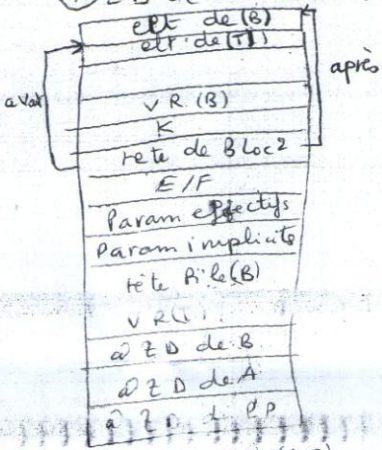 elt de (B)
elt de (T)
avant
après
V R (B)
K
tête de Bloc 2
E/F
Param effectifs
Param implicite
tête Pile (B)
V R (
@ Z D de B
@ Z D de A
@ Z D